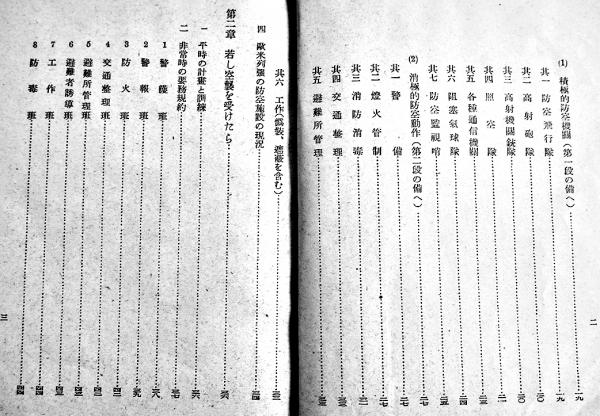 (1) 積極的防空機關(第一段の備へ)……一九
其一 防空飛行隊……一九
其二 高射砲隊……二〇
其三 高射機關銃隊……二〇
其四 照空隊
其五 各種通信機關
其六 阻塞氣球隊
其七 防空監視哨
(2) 消極的防空動作(第二段の備へ)
其一 警備
其二 燈火管制
其三 消防消毒
其四 交通整理
其五 避難所管理
二
其六 工作(僞裝、遮蔽を含む)
四 歐米列强の防空施設の現況
第二章 若し空襲を受けたら
一 平時の計畫と訓練
二 非常時の要務規約
1 警護班
2 警報班
3 防火班
4 交通整理班
5 避難所管理班
6 避難者誘導班
7 工作班
8 防毒班
三